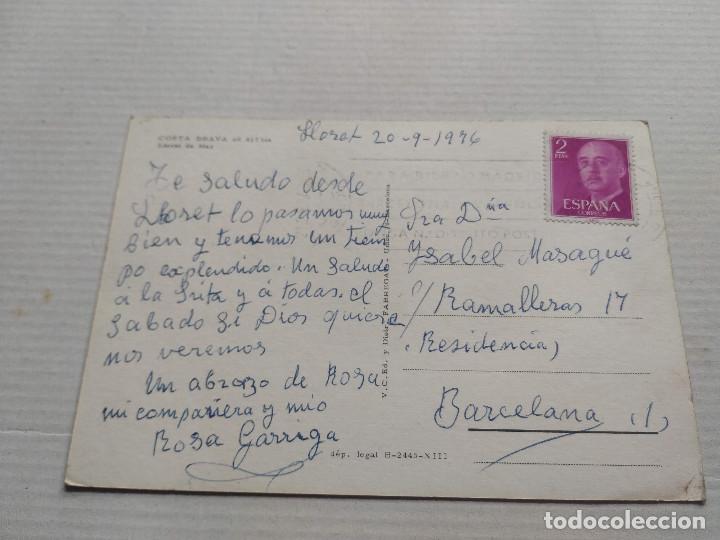 COSTA BRAVA
Lloret de Mar
Lloret 20-9-1976
Te saludo desde
Lloret lo pasamos muy
bien y tenemos un tiem
po explendido. Un saludo
á la Srita y á todas. el
Sabado Si Dios quiera
nos veremos
Un abrazo de Rosa
mi compañera y mio
Rosa Garriga
V. C. Ed. y Distr. FABREGAT
Barcelona
dép. legal B-2445-XIII
2
PTAS
ESPAÑA
CORREOS
Sra Dña
Ysabel Masagué
c/ Ramalleras 17
(Residencia)
Barcelona (1)
todocoleccion.net